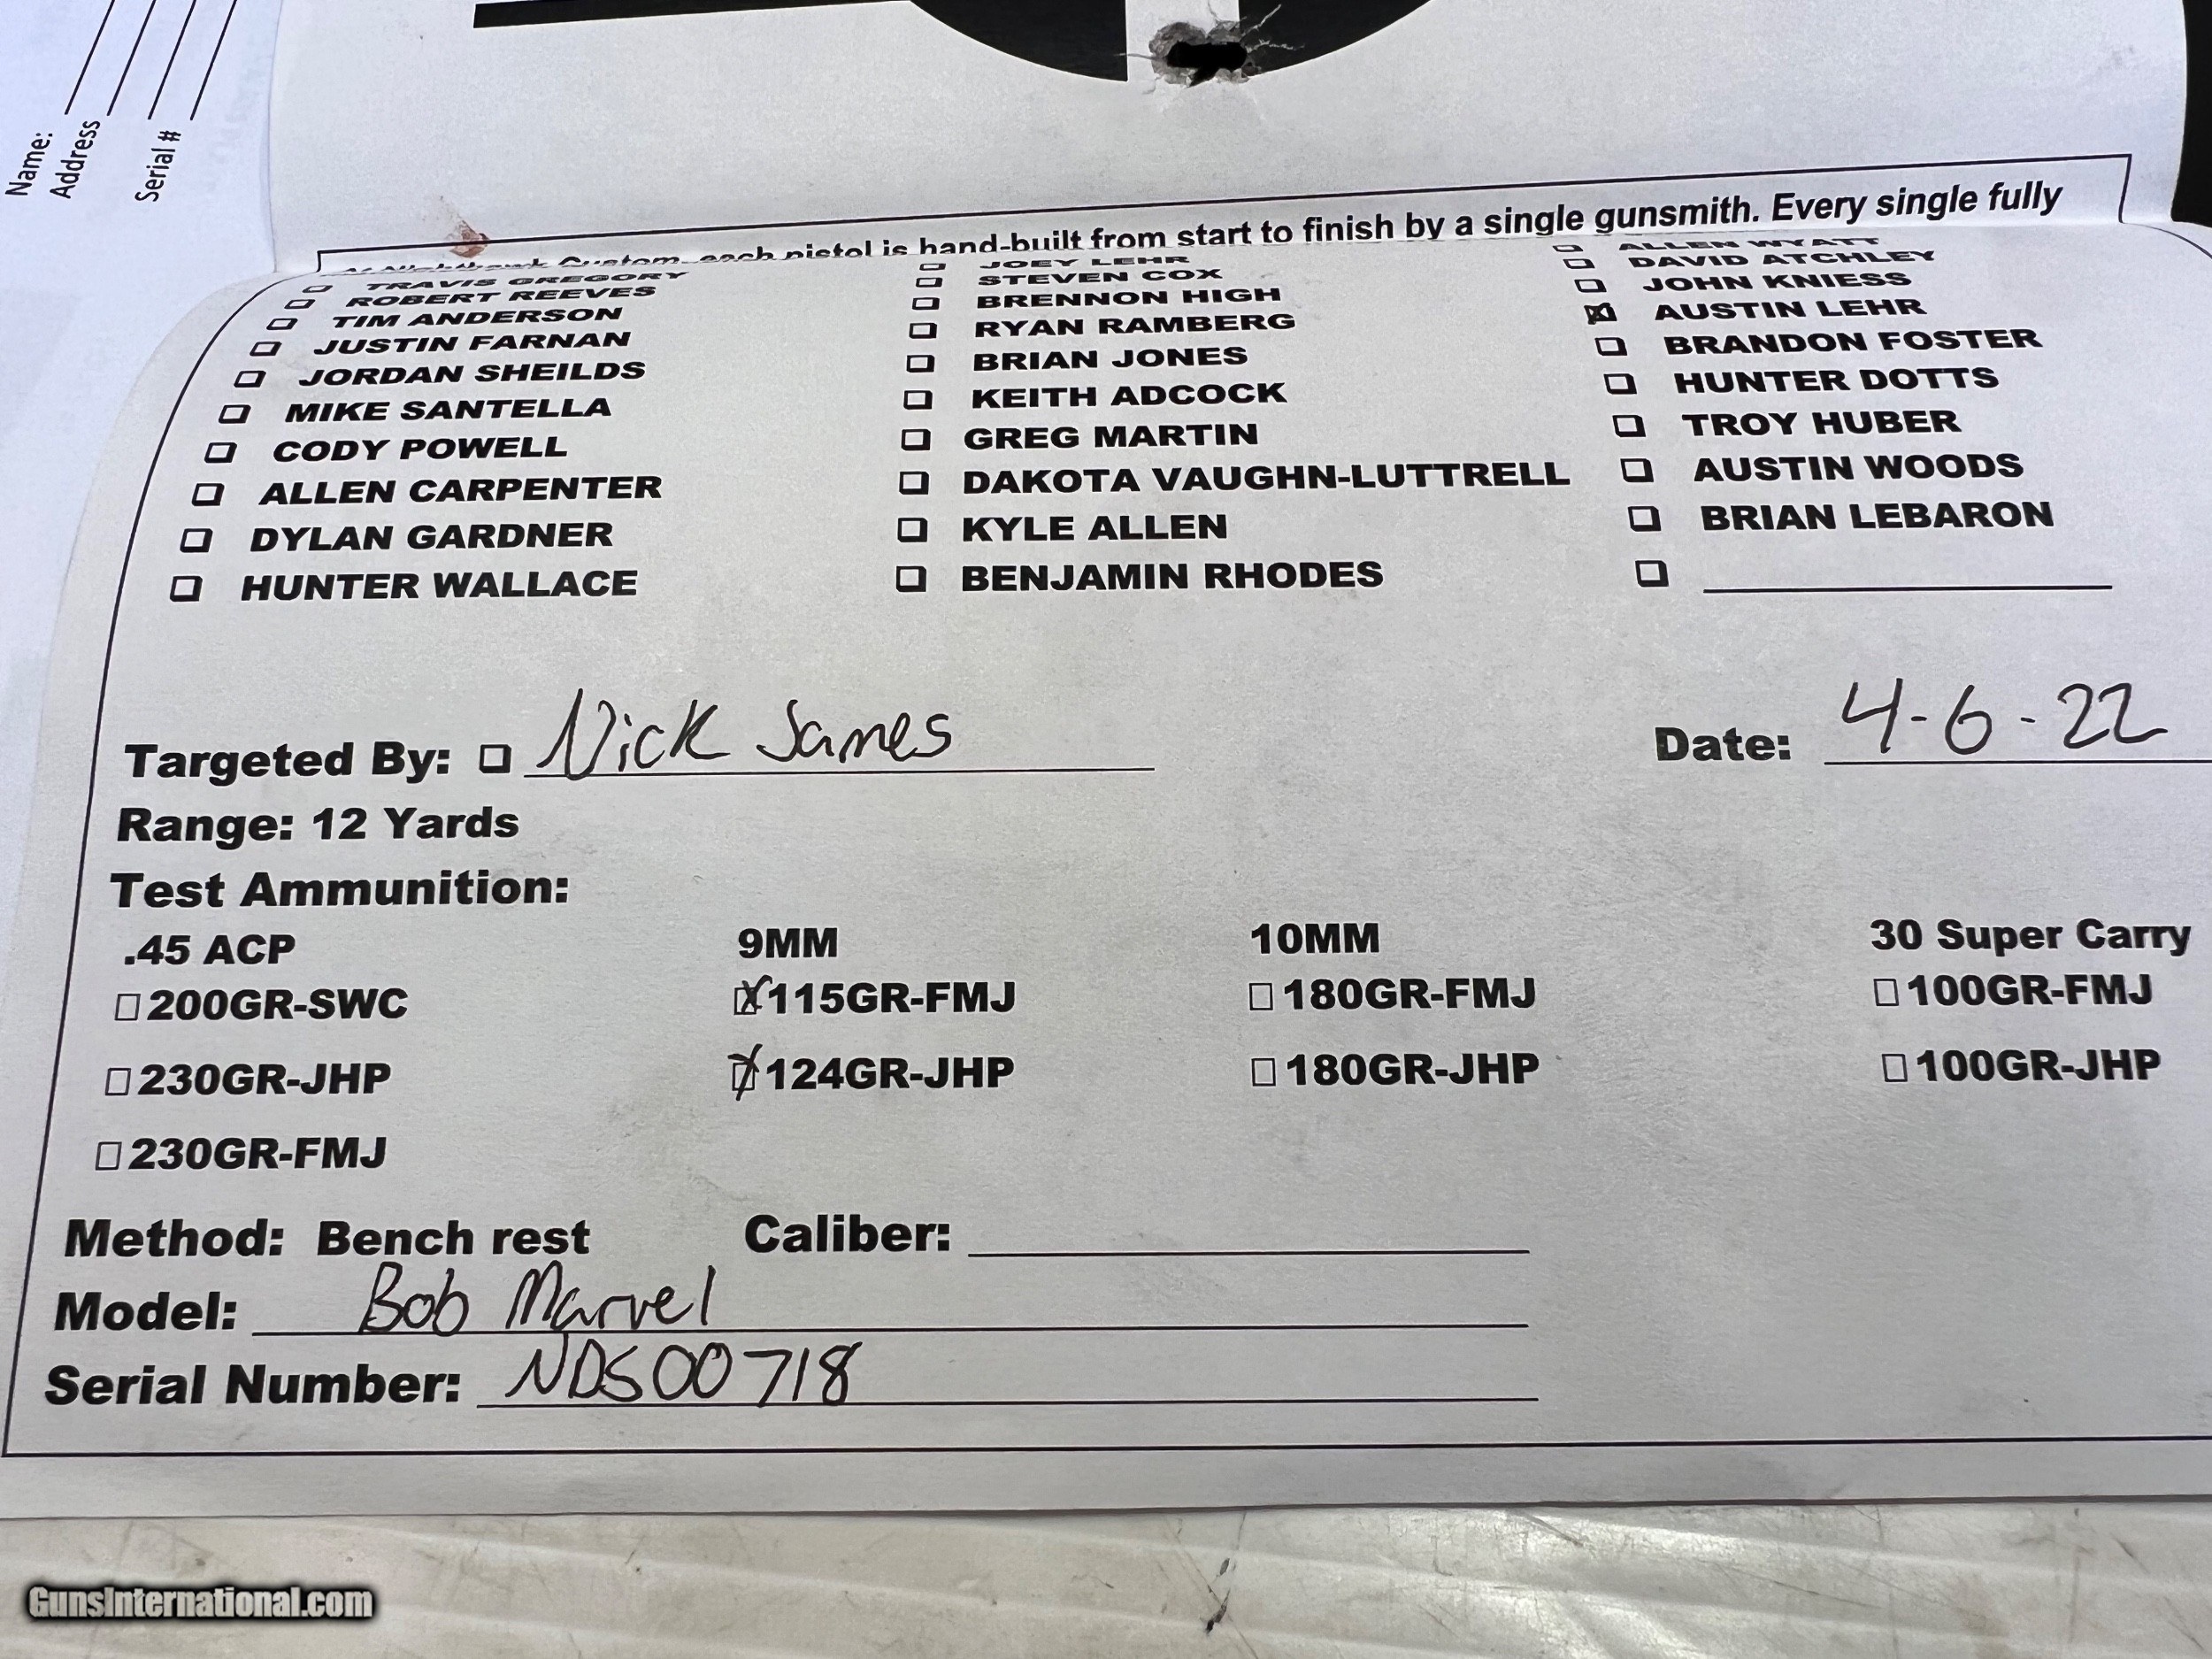 Name:
Address
Serial #
At Nighthawk Custom, each pistol is hand-built from start to finish by a single gunsmith. Every single fully
☐ TRAVIS GREGORY ☐ JOEY LEHR ☐ ALLEN WYATT
☐ ROBERT REEVES ☐ STEVEN COX ☐ DAVID ATCHLEY
☐ TIM ANDERSON ☐ BRENNON HIGH ☐ JOHN KNIESS
☐ JUSTIN FARNAN ☐ RYAN RAMBERG ☒ AUSTIN LEHR
☐ JORDAN SHEILDS ☐ BRIAN JONES ☐ BRANDON FOSTER
☐ MIKE SANTELLA ☐ KEITH ADCOCK ☐ HUNTER DOTTS
☐ CODY POWELL ☐ GREG MARTIN ☐ TROY HUBER
☐ ALLEN CARPENTER ☐ DAKOTA VAUGHN-LUTTRELL ☐ AUSTIN WOODS
☐ DYLAN GARDNER ☐ KYLE ALLEN ☐ BRIAN LEBARON
☐ HUNTER WALLACE ☐ BENJAMIN RHODES ☐
Targeted By: ☐ Nick James Date: 4-6-22
Range: 12 Yards
Test Ammunition:
.45 ACP 9MM 10MM 30 Super Carry
☐200GR-SWC ☒115GR-FMJ ☐180GR-FMJ ☐100GR-FMJ
☐230GR-JHP ☒124GR-JHP ☐180GR-JHP ☐100GR-JHP
☐230GR-FMJ
Method: Bench rest Caliber:
Model: Bob Marvel
Serial Number: NDS00718
GunsInternational.com